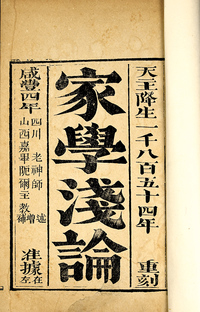 天主降生一千八百五十四年 重刻
家學淺論
咸豐四年
四川 老神師 述
山西嘉畢阨爾主教 增
准據在左